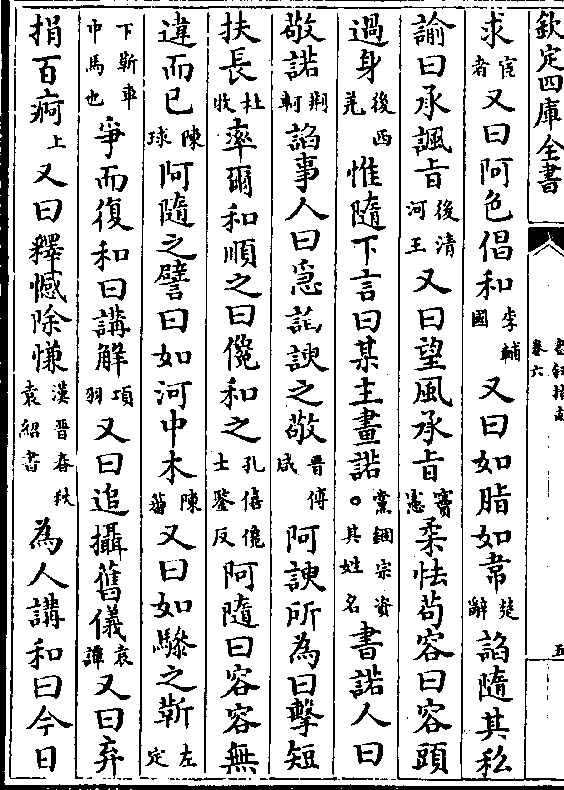 欽定四庫全書
書敘指南
卷六
五
求宦者又曰阿色倡和李輔國又曰如脂如韋楚辭諂隨其私
諭曰承諷旨後清河王又曰望風承旨竇憲柔怯茍容曰容頭
過身後西羌惟隨下言曰某主畫諾黨錮宗資○其姓名書諾人曰
敬諾荆軻諂事人曰諛之敬晉傅咸阿諛所為曰擊短
扶長杜牧率爾和順之曰儳和之孔僖儳士鑒反阿隨曰容容無
違而已陳球阿隨之譬曰如河中木陳蕃又曰如驂之靳左定
下靳車中馬也爭而復和曰講解項羽又曰追攝舊儀袁譚又曰弃
捐百痾上又曰釋憾除慊漢晉春秋袁紹書為人講和曰今日